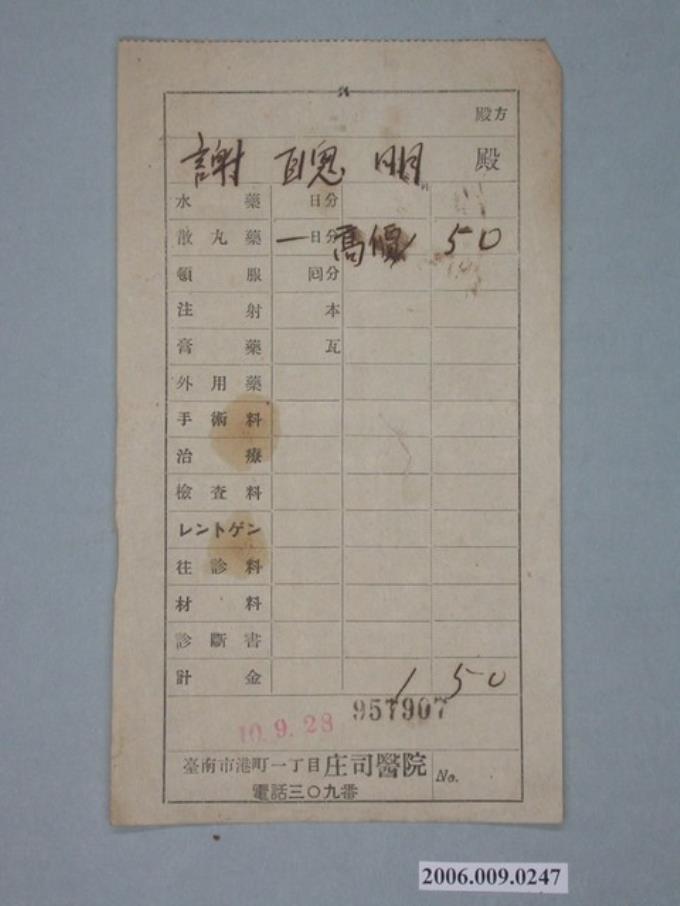 殿方
謝 聰明 殿
水藥 日分
散丸藥 一日分 高價 1 50
頓服 回分
注射 本
膏藥 瓦
外用藥
手術料
治療
檢查料
レントゲン
往診料
材料
診斷書
計金 1 50
957907
10.9.28
臺南市港町一丁目庄司醫院 No.
電話三〇九番
2006.009.0247